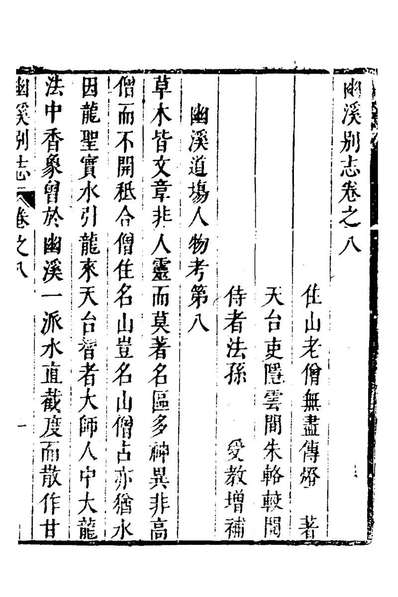 幽溪别志卷之八
住山老僧無盡傳燈 著
天台吏隱雲間朱輅較閱
侍者法孫 受教增補
幽溪道場人物考第八
草木皆文章非人靈而莫著名區多神異非高
僧而不開秪合僧住名山豈名山僧占亦猶水
因龍聖實水引龍來天台智者大師人中大龍
法中香象曾於幽溪一派水直截度而散作甘
幽溪别志 卷之八 一